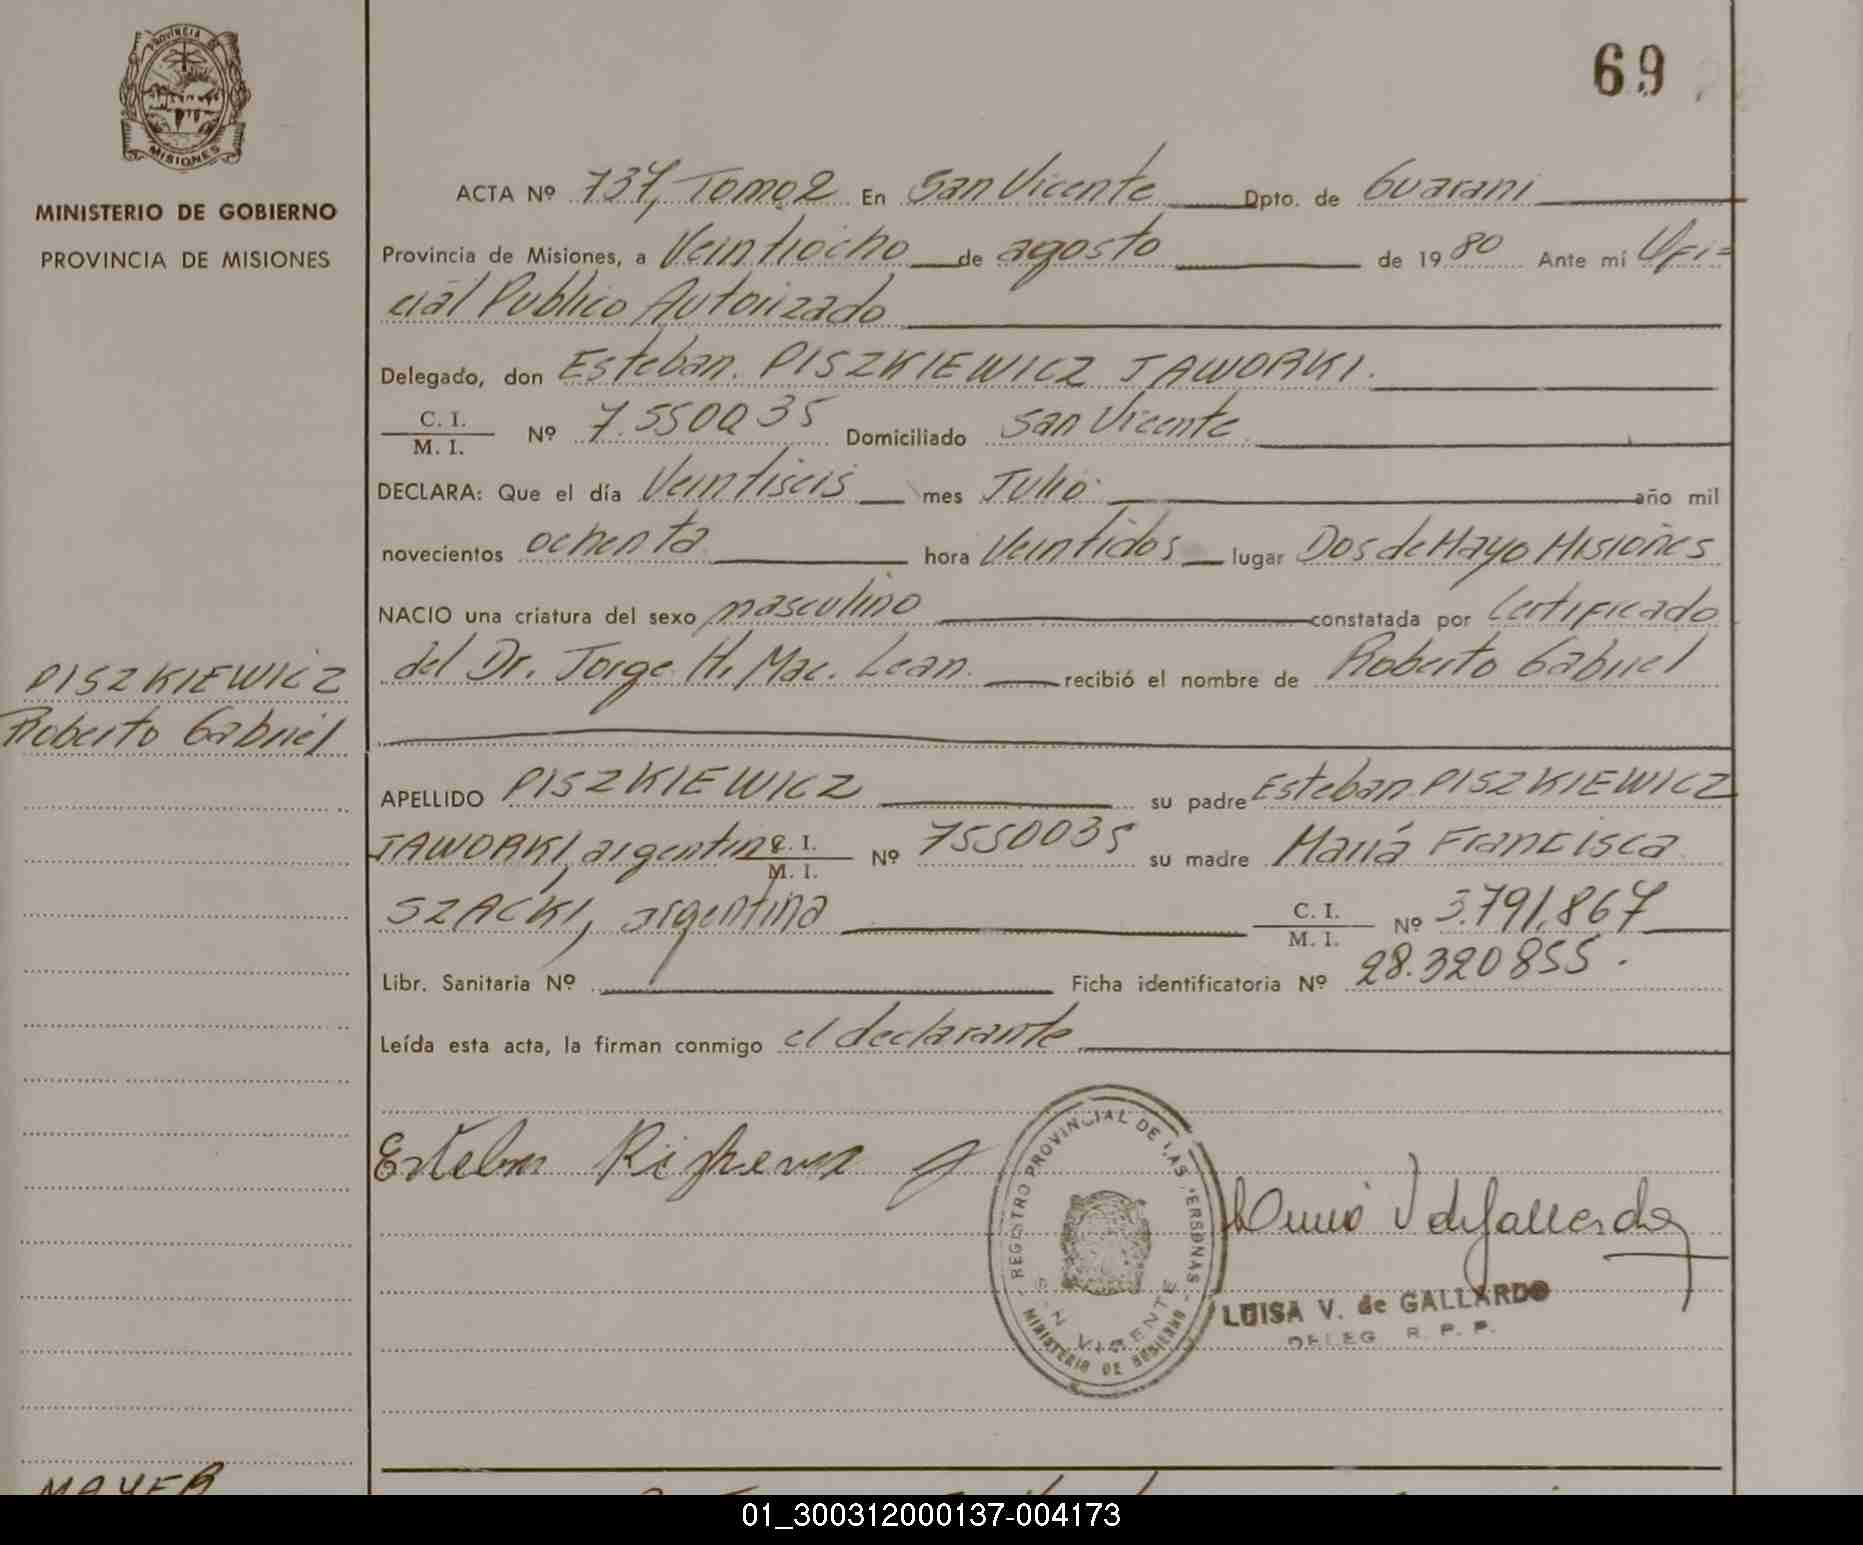 PROVINCIA DE
MISIONES
MINISTERIO DE GOBIERNO
PROVINCIA DE MISIONES
PISZKIEWICZ
Roberto Gabriel
69
ACTA Nº 737, Tomo 2 En San Vicente Dpto. de Guarani
Provincia de Misiones, a Veintiocho de agosto de 1980 Ante mí Ofi=
cial Publico Autorizado
Delegado, don Esteban. PISZKIEWICZ JAWORKI.
C. I.
M. I. Nº 7.550035 Domiciliado San Vicente
DECLARA: Que el día Veintiseis mes Julio año mil
novecientos ochenta hora Veintidos lugar Dos de Mayo Misiones
NACIO una criatura del sexo masculino constatada por Certificado
del Dr. Jorge H. Mac. Lean. recibió el nombre de Roberto Gabriel
APELLIDO PISZKIEWICZ su padre Esteban PISZKIEWICZ
JAWORKI, argentino C. I. M. I. Nº 7550035 su madre María Francisca
SZACKI, argentina C. I. M. I. Nº 3.791.867
Libr. Sanitaria Nº Ficha identificatoria Nº 28.320855.
Leída esta acta, la firman conmigo el declarante
Esteban
REGISTRO PROVINCIAL DE LAS PERSONAS
SAN VICENTE
MINISTERIO DE GOBIERNO
V de Gallardo
LUISA V. de GALLARDO
DELEG. R. P. P.
MAYER
01_300312000137-004173